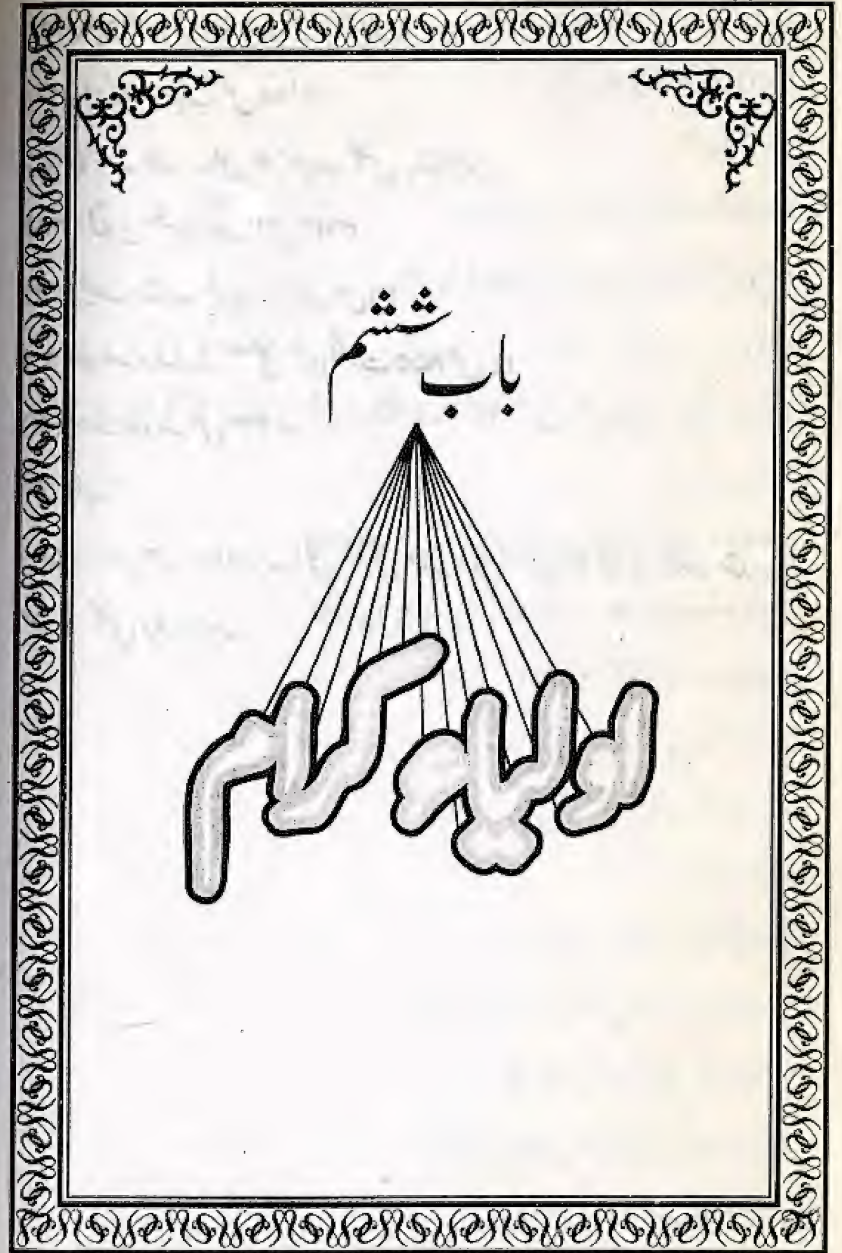 باب ششم
اولیاء کرام